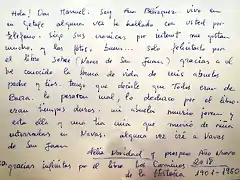 Hola! Don Manuel: Soy Ana Rodriguez vivo en
un Getafe alguna vez he hablado con usted por
telefono. sigo sus cronicas por internet me gustan
mucho, y las fotos, bueno... solo felicitarlo por
el libro sobre (Navas de San Juan, gracias a el
he conocido la forma de vida de mis abuelos
padre y tios. tengo que decirle que Todos eran de
Baza. lo pasaron mal, lo deduzco por el libro.
eran tiempos duros. mi abuela murio joven, y
esta ella y una tia mia que murio de niña
enterradas en Navas. alguna vez iré a Navas
de San Juan
Feliz Navidad y prospero Año Nuevo
2018
gracias infinitas por el libro de los Caminos
de la Historia 1901-1960